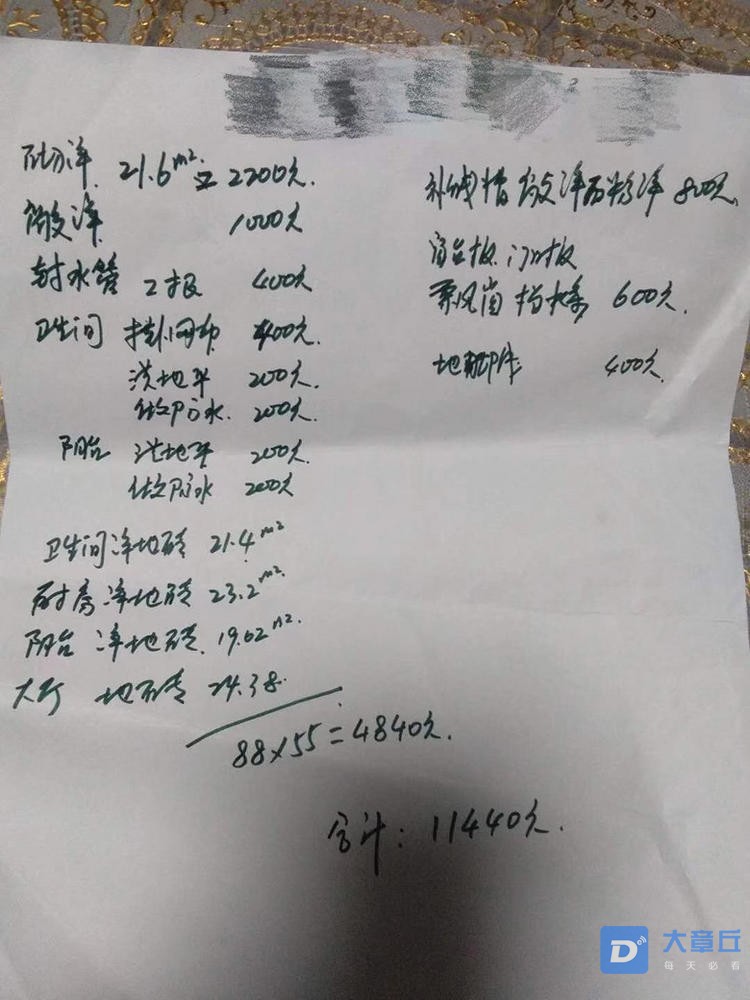 21.6m² 2200元.
1000元
水管 2根 400元
卫生间 挂网布 400元.
洪地平 200元.
做防水. 200元.
阳台 洪地平 200元.
做防水 200元
卫生间净地砖 21.4m²
净地砖 23.2m²
阳台 净地砖. 19.62m².
大厅 地砖 24.38.
88×55=4840元.
合计: 11440元.
补线槽 800元.
窗台板.
600元.
400元.
大章丘
每天必看